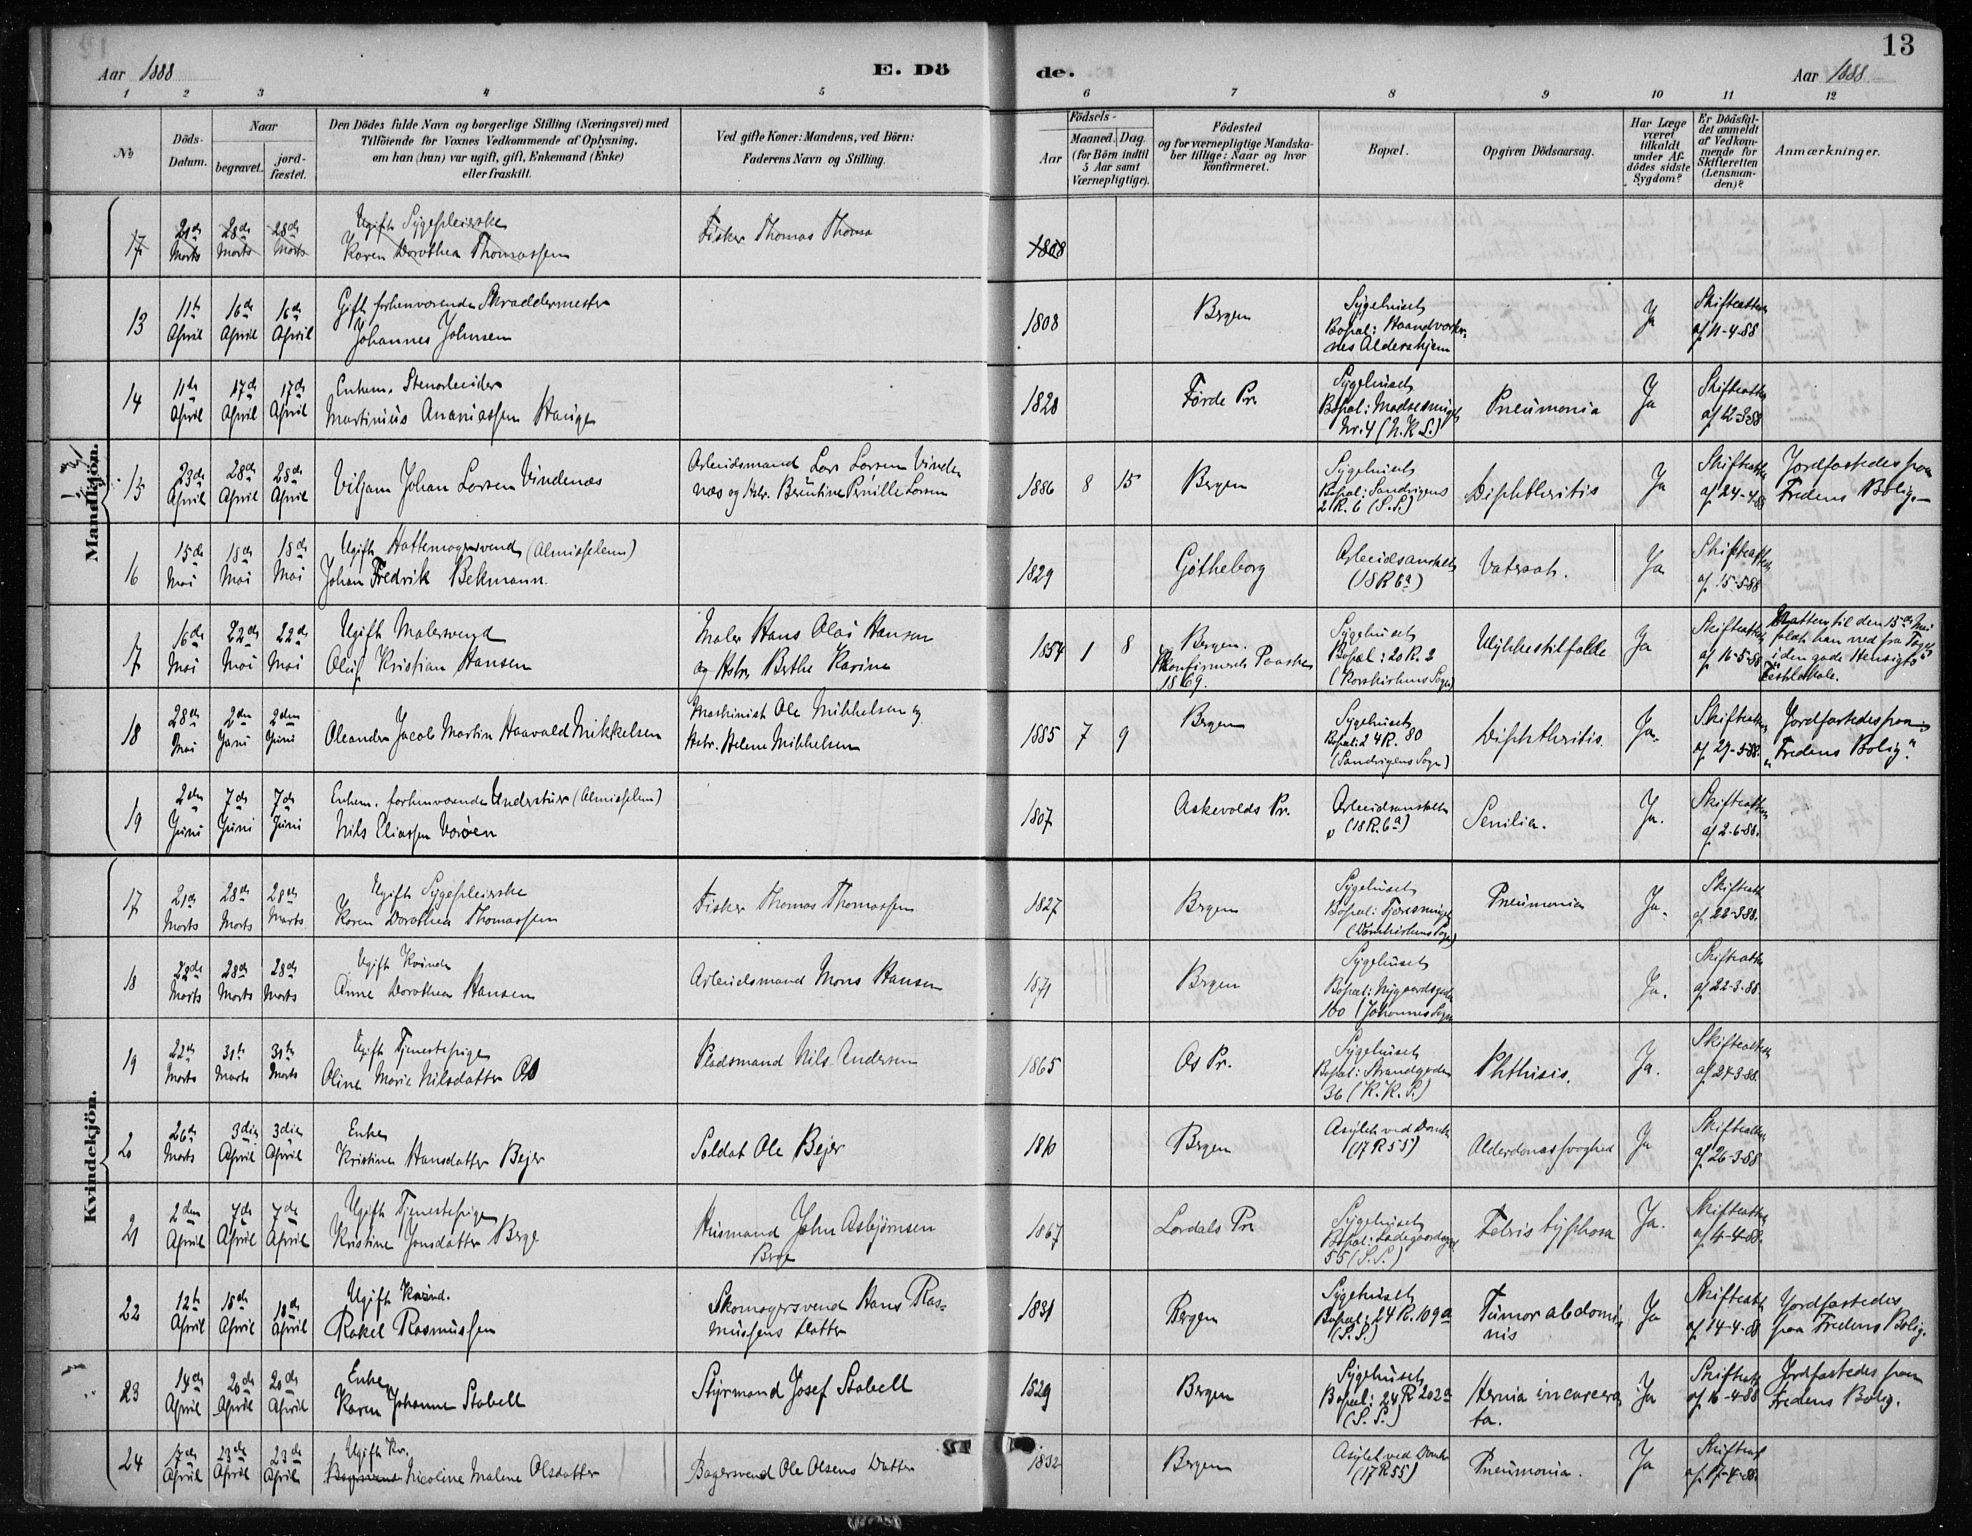 13
Aar 1888
E. Dö
de.
Aar 1888
1 2 3 4 5 6 7 8 9 10 11 12
No
Döds-
Datum.
Naar
begravet.
jord-
fæstet.
Den Dödes fulde Navn og borgerlige Stilling (Næringsvei) med
Tilföiende for Voxnes Vedkommende af Oplysning,
om han (hun) var ugift, gift, Enkemand (Enke)
eller fraskilt.
Ved gifte Koner: Mandens, ved Börn:
Faderens Navn og Stilling.
Födsels-
Aar
Maaned. Dag.
(for Börn indtil
5 Aar samt
Værnepligtige).
Födested
og for værnepligtige Mandska-
ber tillige: Naar og hvor
konfirmeret.
Bopæl.
Opgiven Dödsaarsag.
Har Læge
været
tilkaldt
under Af-
dödes sidste
Sygdom?
Er Dödsfal-
det anmeldt
af Vedkom-
mende for
Skifteretten
(Lensman-
den)?
Anmærkninger.
Mandkjön.
17 21de Marts 28de Marts 28de Marts
Ugift Sygepleierske
Karen Dorothea Thomassen
Fisker Thomas Thoma
1808
13 11te April 16de April 16de April
Gift forhenværende Skræddermester
Johannes Johnsen
1808 Bergen
Sygehuset
Bopæl: Haandværker-
nes Aldershjem
Ja
Skifteatten
af 11-4-88
14 11te April 17de April 17de April
Enkem. Stenarbeider
Martinius Ananiassen Hauge
1820 Förde Pr.
Sygehuset
Nr. 4 (N.K.S.)
Pneumonia Ja
Skifteatten
af 12-3-88
15 23de April 28de April 28de April
Viljam Johan Larsen Vindenæs
Arbeidsmand Lars Larsen Vinde
næs og Hstr. Berentine Pernille Larsen
1886 8 15 Bergen
Sygehuset
Bopæl: Sandvigens
2 R. 6 (S.S.)
Diphtheritis Ja
Skifteatten
af 24-4-88
Jordfæstedes paa
Fredens Bolig.
16 15de Mai 18de Mai 18de Mai
Ugift Hattemagersvend (Almisselem)
Johan Fredrik Bekmann.
1829 Götheborg
Arbeidsanstalten
(18 R 6a)
Ja
Skifteatten
af 15-5-88
17 16de Mai 22de Mai 22de Mai
Ugift Malersvend
Oluf Kristian Hansen
Maler Hans Olai Hansen
og Hstr. Berthe Karine
1854 1 8
Bergen.
Konfirmeret Paaske
1869.
Sygehuset
Bopæl: 20 R. 2
(Korskirkens Sogn)
Ulykkestilfælde Ja
Skifteatten
af 16-5-88
Natten til den 15de Mai
faldt han ned fra Taget
i den gode Hensigts"
Festlokale.
18 28de Mai 2den Juni 2den Juni
Oleander Jacob Martin Haavald Mikkelsen
Maskinist Ole Mikkelsen og
Hstr. Helene Mikkelsen
1885 7 9 Bergen
Sygehuset
Bopæl: 24 R. 80
(Sandvigens Sogn)
Diphtheritis. Ja.
Skifteatten
af 29-5-88.
Jordfæstedes paa
„Fredens Bolig".
19 2den Juni 7de Juni 7de Juni
Enkem. forhenværende Understuer (Almisselem)
Nils Eliassen Voröen
1807 Askevolds Pr.
Arbeidsanstalten
(18 R. 6a)
Senilia. Ja.
Skifteatten
af 2-6-88.
Kvindekjön.
17 21de Marts 28de Marts 28de Marts
Ugift Sygepleierske
Karen Dorothea Thomassen
Fisker Thomas Thomassen
1827 Bergen
Sygehuset
(Domkirkens Sogn)
Pneumonia Ja.
Skifteatten
af 22-3-88.
18 22de Marts 28de Marts 28de Marts
Ugift Kvinde
Anne Dorothea Hansen
Arbeidsmand Mons Hansen
1871 Bergen
Sygehuset
Bopæl: Nygaardsgaden
100 (Johannes Sogn)
Ja.
Skifteatten
af 22-3-88.
19 22de Marts 31te Marts 31te Marts
Ugift Tjenestepige
Oline Marie Nilsdatter Os
Pladsmand Nils Andersen
1865 Os Pr.
Sygehuset
Bopæl: Strandgaden
36 (K.K.S.)
Phthisis. Ja.
Skifteatten
af 24-3-88.
20 26de Marts 3die April 3die April
Enke
Kristine Hansdatter Bejer
Soldat Ole Bejer
1810 Bergen
Asylet ved Domk.
(17 R 55)
Alderdomssvaghed Ja
Skifteatten
af 26-3-88
21 2den April 7de April 7de April
Ugift Tjenestepige
Kristine Jonsdatter Berge
Husmand John Asbjörnsen
Berge
1867 Lærdals Pr.
Sygehuset
Bopæl: Ladegaardsgd
55 (S.S.)
Febris typhosa Ja.
Skifteatten
af 4-4-88.
22 12te April 18de April 18de April
Ugift Kvind.
Rakel Rasmussen
Skomagersvend Hans Ras-
mussens Datter
1831 Bergen
Sygehuset
Bopæl: 24 R. 109a
(S.S.)
Tumor abdomi-
nis
Ja
Skifteatten
af 14-4-88
Jordfæstedes
paa Fredens Bolig.
23 14de April 20de April 20de April
Enke
Karen Johanne Stabell
Styrmand Josef Stabell
1829 Bergen
Sygehuset
Bopæl: 24 R 202a
(S.S.)
Hernia incarcera
ta.
Ja
Skifteatt
af 16-4-88
Jordfæstedes paa
Fredens Bolig.
24 17de April 23de April 23de April
Ugift Kv.
Nicoline Malene Olsdatter
Bagersvend Ole Olsens Datter
1832 Bergen
Asylet ved Domk
(17 R 55)
Pneumonia. Ja
Skifteatt
af 17-4-88.